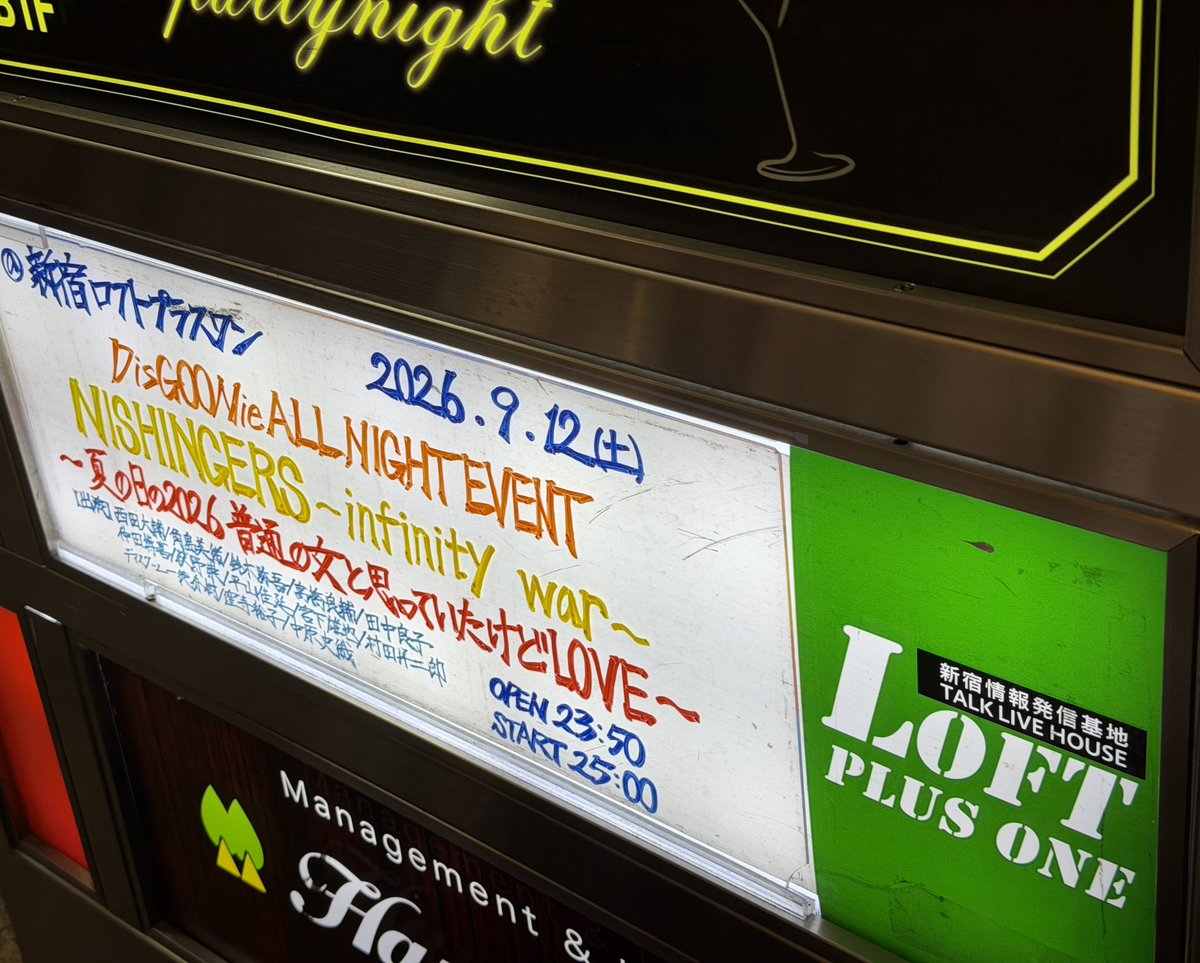 B1F
partynight
新宿ロフトプラスワン
2026.9.12(土)
DisGOONie ALL NIGHT EVENT
NISHINGERS ~infinity war~
~夏の日の2026 普通の女と思っていたけどLOVE~
[出演]西田大輔/ 鈴木勝吾/ 田中良子
平山佳延/宮下雄也/村田洋二郎
/中原史織
OPEN 23:50
START 25:00
新宿情報発信基地
TALK LIVE HOUSE
LOFT
PLUS ONE
Management &
Ha